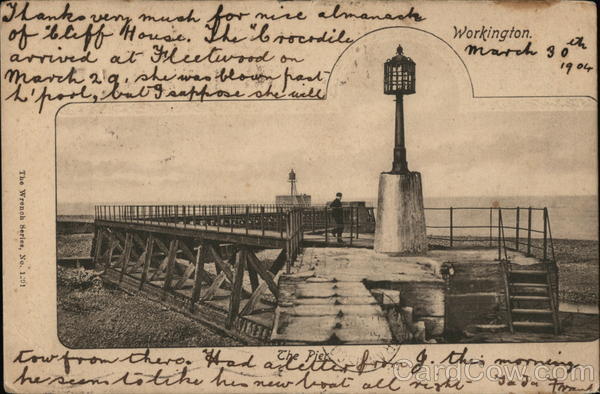 Thanks very much for nice almanack
of "Cliff House. The "Crocodile
arrived at Fleetwood on
March 29, she was blown past
h'pool, but I suppose she will
Workington.
March 30th
1904
The Wrench Series, No. 1
The Pier
tow from there. Had a letter from J. this morning
he seems to like his new boat all right Ta Ta Frank
CardCow.com